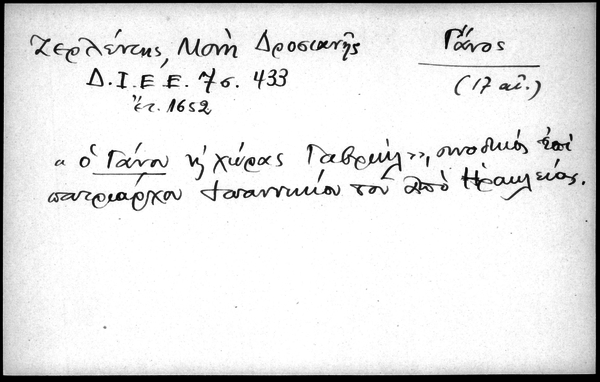 Ζερλέντης, Μονὴ Δροσιανῆς
Γάνος
Δ.Ι.Ε.Ε. 7 σ. 433
(17 αἰ.)
ἔτ. 1652
"ὁ Γάνου κ χώρας Γαβριήλ", συνοδικός ἐπὶ
πατριάρχου Ἰωαννικίου τοῦ ἀπὸ Ἡρακλείας.